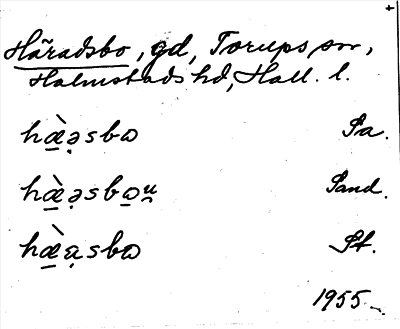 Häradsbo, gd, Torups sn,
Halmstads hd, Hall. l.
hæ̀ə̣sbɷ Pa.
hæ̀ə̣sbɷu̯ Sand.
hæ̀ạsbɷ St.
1955.